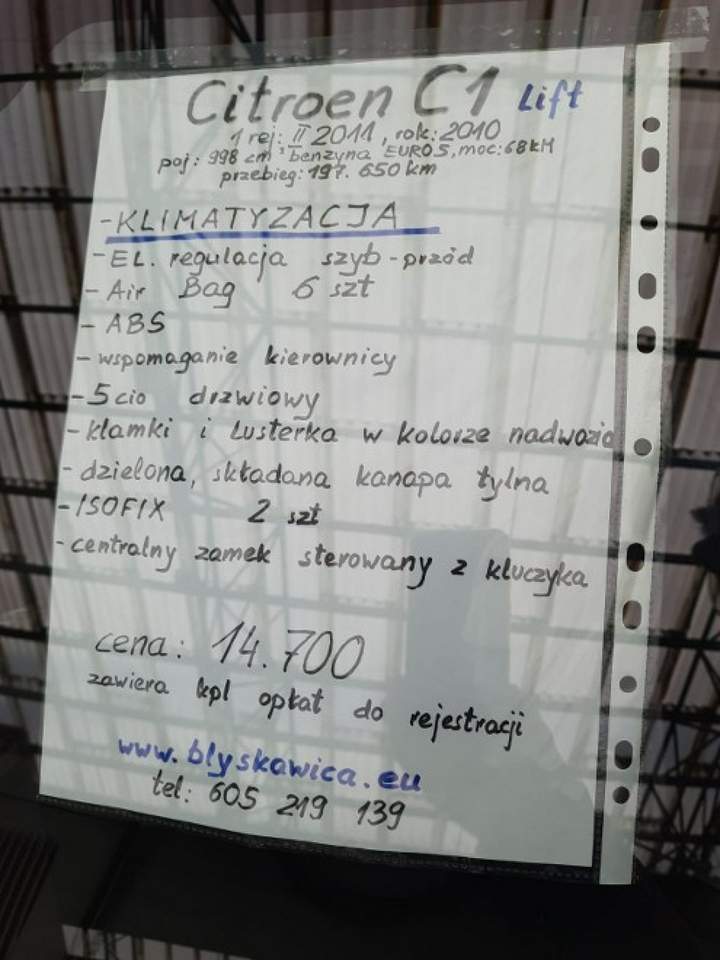 Citroen C1 Lift
1 rej: II 2011, rok: 2010
poj: 998 cm³ benzyna EURO5, moc: 68kM
przebieg: 197. 650 km
- KLIMATYZACJA
- EL. regulacja szyb - przód
- Air Bag 6 szt
- ABS
- wspomaganie kierownicy
- 5 cio drzwiowy
- klamki i Lusterka w kolorze nadwozia
- dzielona, składana kanapa tylna
- ISOFIX 2 szt
- centralny zamek sterowany z kluczyka
cena: 14.700
zawiera kpl opłat do rejestracji
www.blyskawica.eu
tel: 605 219 139